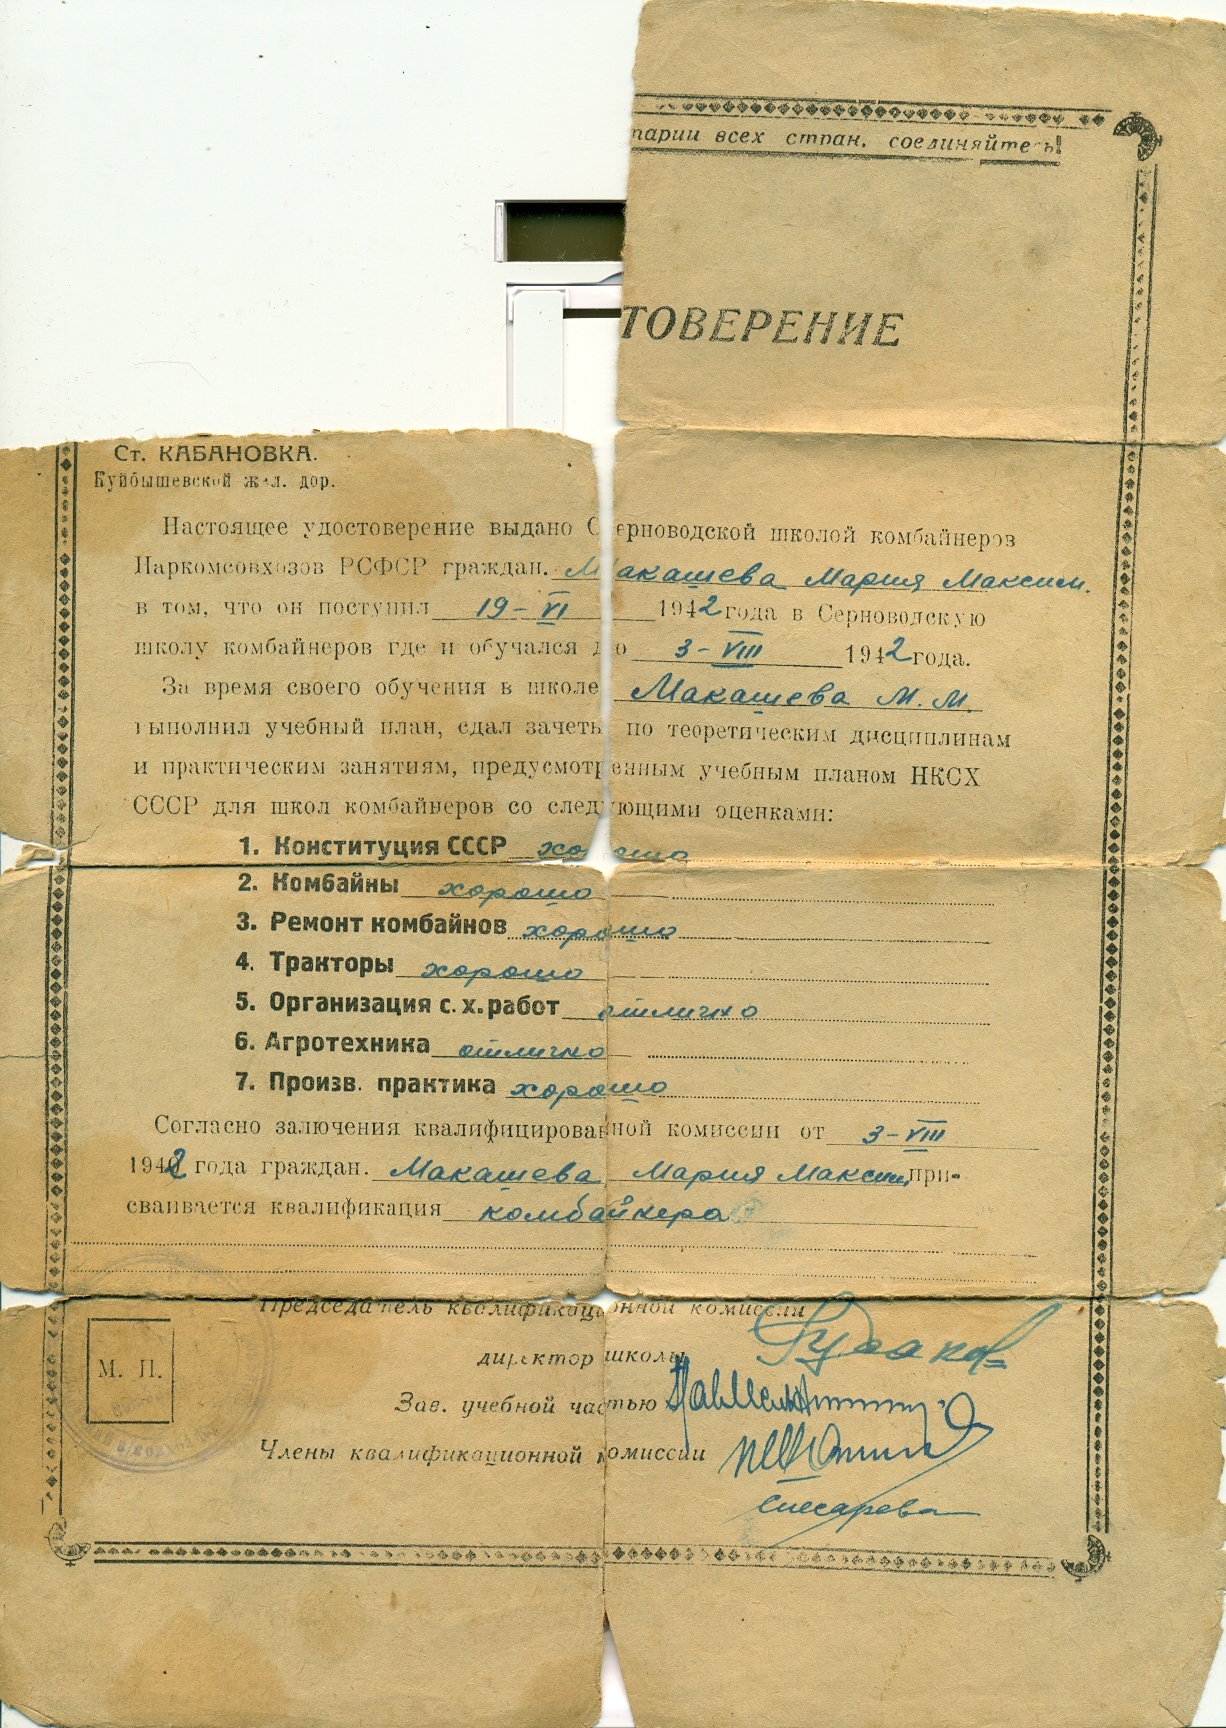 тарии всех стран, соединяйтесь!
ТОВЕРЕНИЕ
Ст. КАБАНОВКА.
Куйбышевской жел. дор.
Настоящее удостоверение выдано Серноводской школой комбайнеров
Наркомсовхозов РСФСР граждан. Макашева Мария Максим.
в том, что он поступил 19-VI 1942 года в Серноводскую
школу комбайнеров где и обучался до 3-VIII 1942 года.
За время своего обучения в школе Макашева М. М.
выполнил учебный план, сдал зачеты по теоретическим дисциплинам
и практическим занятиям, предусмотренным учебным планом НКСХ
СССР для школ комбайнеров со следующими оценками:
1. Конституция СССР хорошо
2. Комбайны хорошо
3. Ремонт комбайнов хорошо
4. Тракторы хорошо
5. Организация с. х. работ отлично
6. Агротехника отлично
7. Произв. практика хорошо
Согласно залючения квалифицированной комиссии от 3-VIII
1942 года граждан. Макашева Мария Максим. при-
сваивается квалификация комбайнера
Председатель квалификационной комиссии
директор школы
М. П.
Зав. учебной частью
Члены квалификационной комиссии
Слесарева